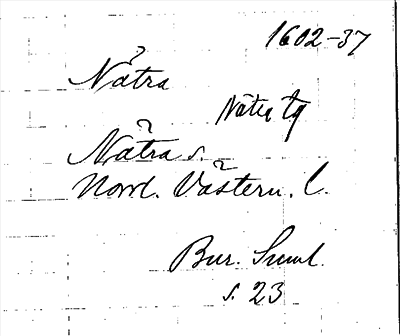 1602-37
Nätra
Nätra tg
Nätra s.
Nord. Västern. l.
Bur. Suml.
s. 23